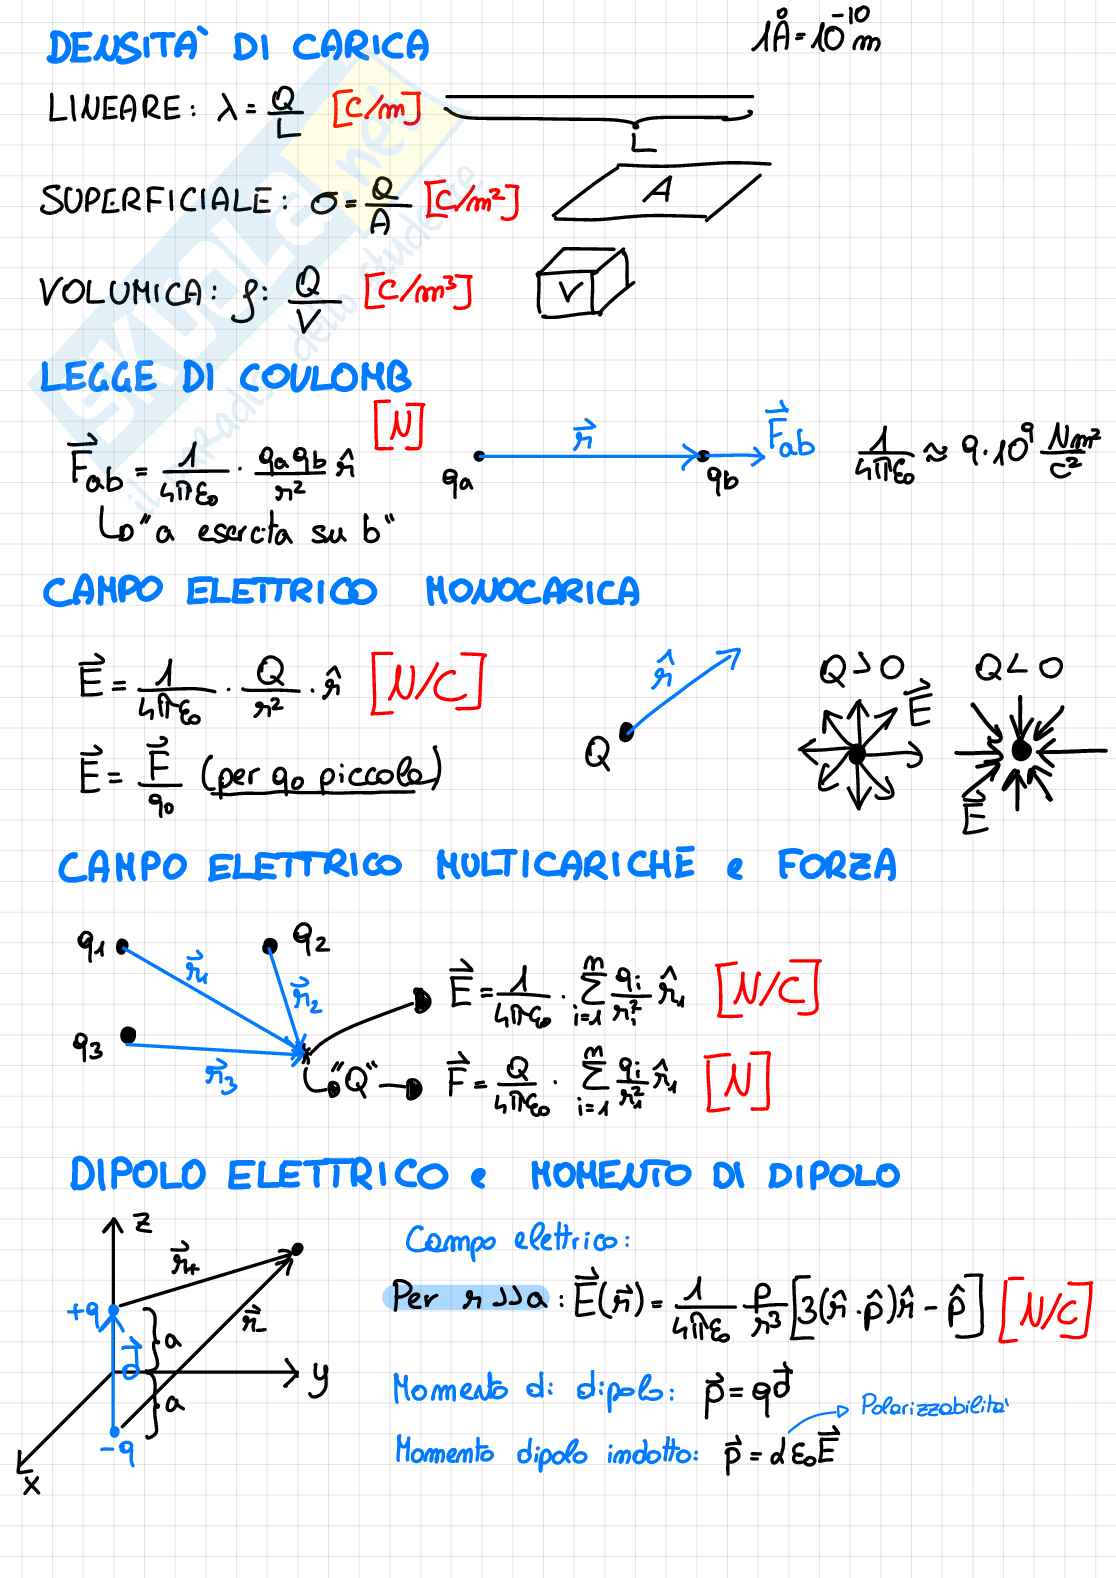 DENSITA' DI CARICA
1Å = 10⁻¹⁰ m
LINEARE: λ = Q/L [C/m]
L
SUPERFICIALE: σ = Q/A [C/m²]
A
VOLUMICA: ρ: Q/V [C/m³]
V
LEGGE DI COULOMB
F⃗ab = 1/4πε₀ · qaqb/r² r̂ [N]
qa r⃗ qb F⃗ab
1/4πε₀ ≈ 9·10⁹ Nm²/C²
↳ "a esercita su b"
CAMPO ELETTRICO MONOCARICA
E⃗ = 1/4πε₀ · Q/r² · r̂ [N/C]
Q r̂
Q > 0 E⃗
Q < 0 E⃗
E⃗ = F⃗/q₀ (per q₀ piccola)
CAMPO ELETTRICO MULTICARICHE e FORZA
q1 r⃗1 q2 r⃗2
q3 r⃗3
E⃗ = 1/4πε₀ · Σ i=1 n qi/ri² r̂1 [N/C]
"Q" F⃗ = Q/4πε₀ · Σ i=1 n qi/r1² r̂1 [N]
DIPOLO ELETTRICO e MOMENTO DI DIPOLO
z r⃗+ r⃗-
+q d⃗ a
a y
-q
x
Campo elettrico:
Per r >> a : E⃗(r⃗) = 1/4πε₀ p/r³ [3(r̂·p̂)r̂ - p̂] [N/C]
Momento di dipolo: p⃗ = qd⃗
Polarizzabilità
Momento dipolo indotto: p⃗ = αε₀E⃗
SKUOLA.net
il paradiso dello studente